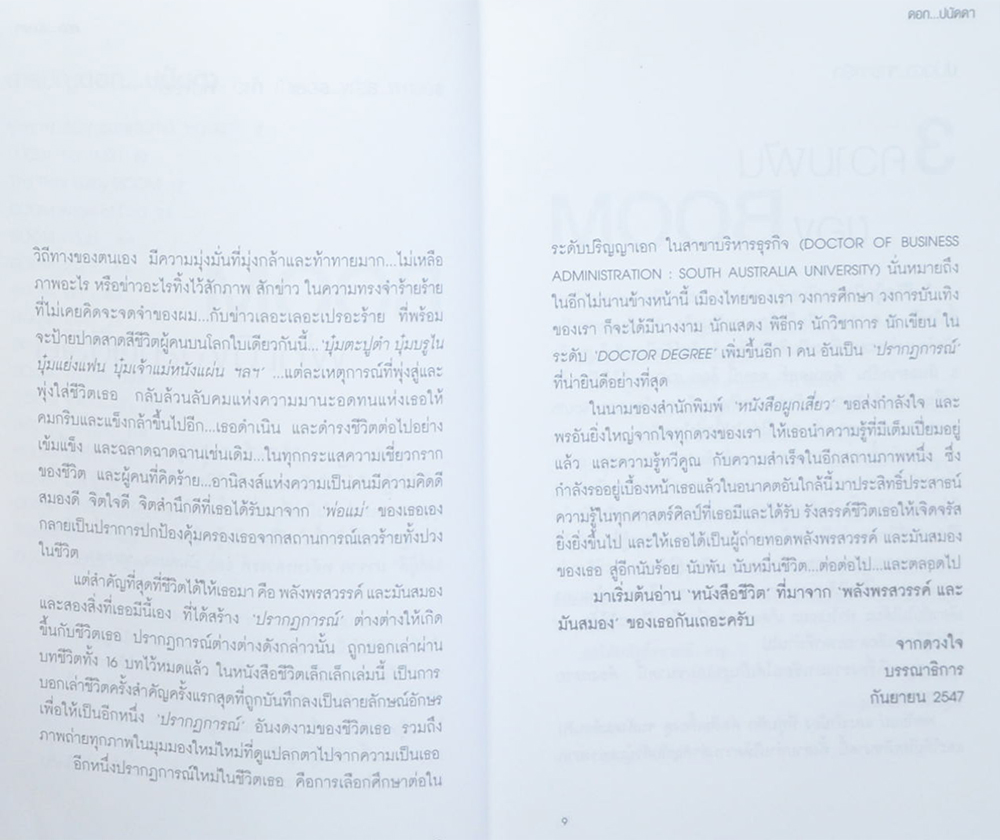 วิถีทางของตนเอง มีความมุ่งมั่นที่มุ่งกล้าและท้าทายมาก...ไม่เหลือ
ภาพอะไร หรือข่าวอะไรทิ้งไว้สักภาพ สักข่าว ในความทรงจำร้ายร้าย
ที่ไม่เคยคิดจะจดจำของผม...กับข่าวเลอะเลอะเปรอะร้าย ที่พร้อม
จะป้ายปาดสาดสีชีวิตผู้คนบนโลกใบเดียวกันนี้...'บุ๋มตะปูตำ บุ๋มบรูไน
บุ๋มแย่งแฟน บุ๋มเจ้าแม่หนังแผ่น ฯลฯ' ...แต่ละเหตุการณ์ที่พุ่งสู่และ
พุ่งใส่ชีวิตเธอ กลับล้วนลับคมแห่งความมานะอดทนแห่งเธอให้
คมกริบและแข็งกล้าขึ้นไปอีก...เธอดำเนิน และดำรงชีวิตต่อไปอย่าง
เข้มแข็ง และฉลาดฉาดฉานเช่นเดิม...ในทุกกระแสความเชี่ยวกราก
ของชีวิต และผู้คนที่คิดร้าย...อานิสงส์แห่งความเป็นคนมีความคิดดี
สมองดี จิตใจดี จิตสำนึกดีที่เธอได้รับมาจาก 'พ่อแม่' ของเธอเอง
กลายเป็นปราการปกป้องคุ้มครองเธอจากสถานการณ์เลวร้ายทั้งปวง
ในชีวิต
แต่สำคัญที่สุดที่ชีวิตได้ให้เธอมา คือ พลังพรสวรรค์ และมันสมอง
และสองสิ่งที่เธอมีนี้เอง ที่ได้สร้าง 'ปรากฏการณ์' ต่างต่างให้เกิด
ขึ้นกับชีวิตเธอ ปรากฏการณ์ต่างต่างดังกล่าวนั้น ถูกบอกเล่าผ่าน
บทชีวิตทั้ง 16 บทไว้หมดแล้ว ในหนังสือชีวิตเล็กเล็กเล่มนี้ เป็นการ
บอกเล่าชีวิตครั้งสำคัญครั้งแรกสุดที่ถูกบันทึกลงเป็นลายลักษณ์อักษร
เพื่อให้เป็นอีกหนึ่ง 'ปรากฏการณ์' อันงดงามของชีวิตเธอ รวมถึง
ภาพถ่ายทุกภาพในมุมมองใหม่ใหม่ที่ดูแปลกตาไปจากความเป็นเธอ
อีกหนึ่งปรากฏการณ์ใหม่ในชีวิตเธอ คือการเลือกศึกษาต่อใน
ดอก...ปนัดดา
ระดับปริญญาเอก ในสาขาบริหารธุรกิจ (DOCTOR OF BUSINESS
ADMINISTRATION : SOUTH AUSTRALIA UNIVERSITY) นั่นหมายถึง
ในอีกไม่นานข้างหน้านี้ เมืองไทยของเรา วงการศึกษา วงการบันเทิง
ของเรา ก็จะได้มีนางงาม นักแสดง พิธีกร นักวิชาการ นักเขียน ใน
ระดับ 'DOCTOR DEGREE' เพิ่มขึ้นอีก 1 คน อันเป็น 'ปรากฏการณ์'
ที่น่ายินดีอย่างที่สุด
ในนามของสำนักพิมพ์ 'หนังสือผูกเสี่ยว' ขอส่งกำลังใจ และ
พรอันยิ่งใหญ่จากใจทุกดวงของเรา ให้เธอนำความรู้ที่มีเต็มเปี่ยมอยู่
แล้ว และความรู้ทวีคูณ กับความสำเร็จในอีกสถานภาพหนึ่ง ซึ่ง
กำลังรออยู่เบื้องหน้าเธอแล้วในอนาคตอันใกล้นี้ มาประสิทธิ์ประสาธน์
ความรู้ในทุกศาสตร์ศิลป์ที่เธอมีและได้รับ รังสรรค์ชีวิตเธอให้เจิดจรัส
ยิ่งยิ่งขึ้นไป และให้เธอได้เป็นผู้ถ่ายทอดพลังพรสวรรค์ และมันสมอง
ของเธอ สู่อีกนับร้อย นับพัน นับหมื่นชีวิต...ต่อต่อไป...และตลอดไป
มาเริ่มต้นอ่าน 'หนังสือชีวิต' ที่มาจาก 'พลังพรสวรรค์ และ
มันสมอง' ของเธอกันเถอะครับ
จากดวงใจ
บรรณาธิการ
กันยายน 2547
9